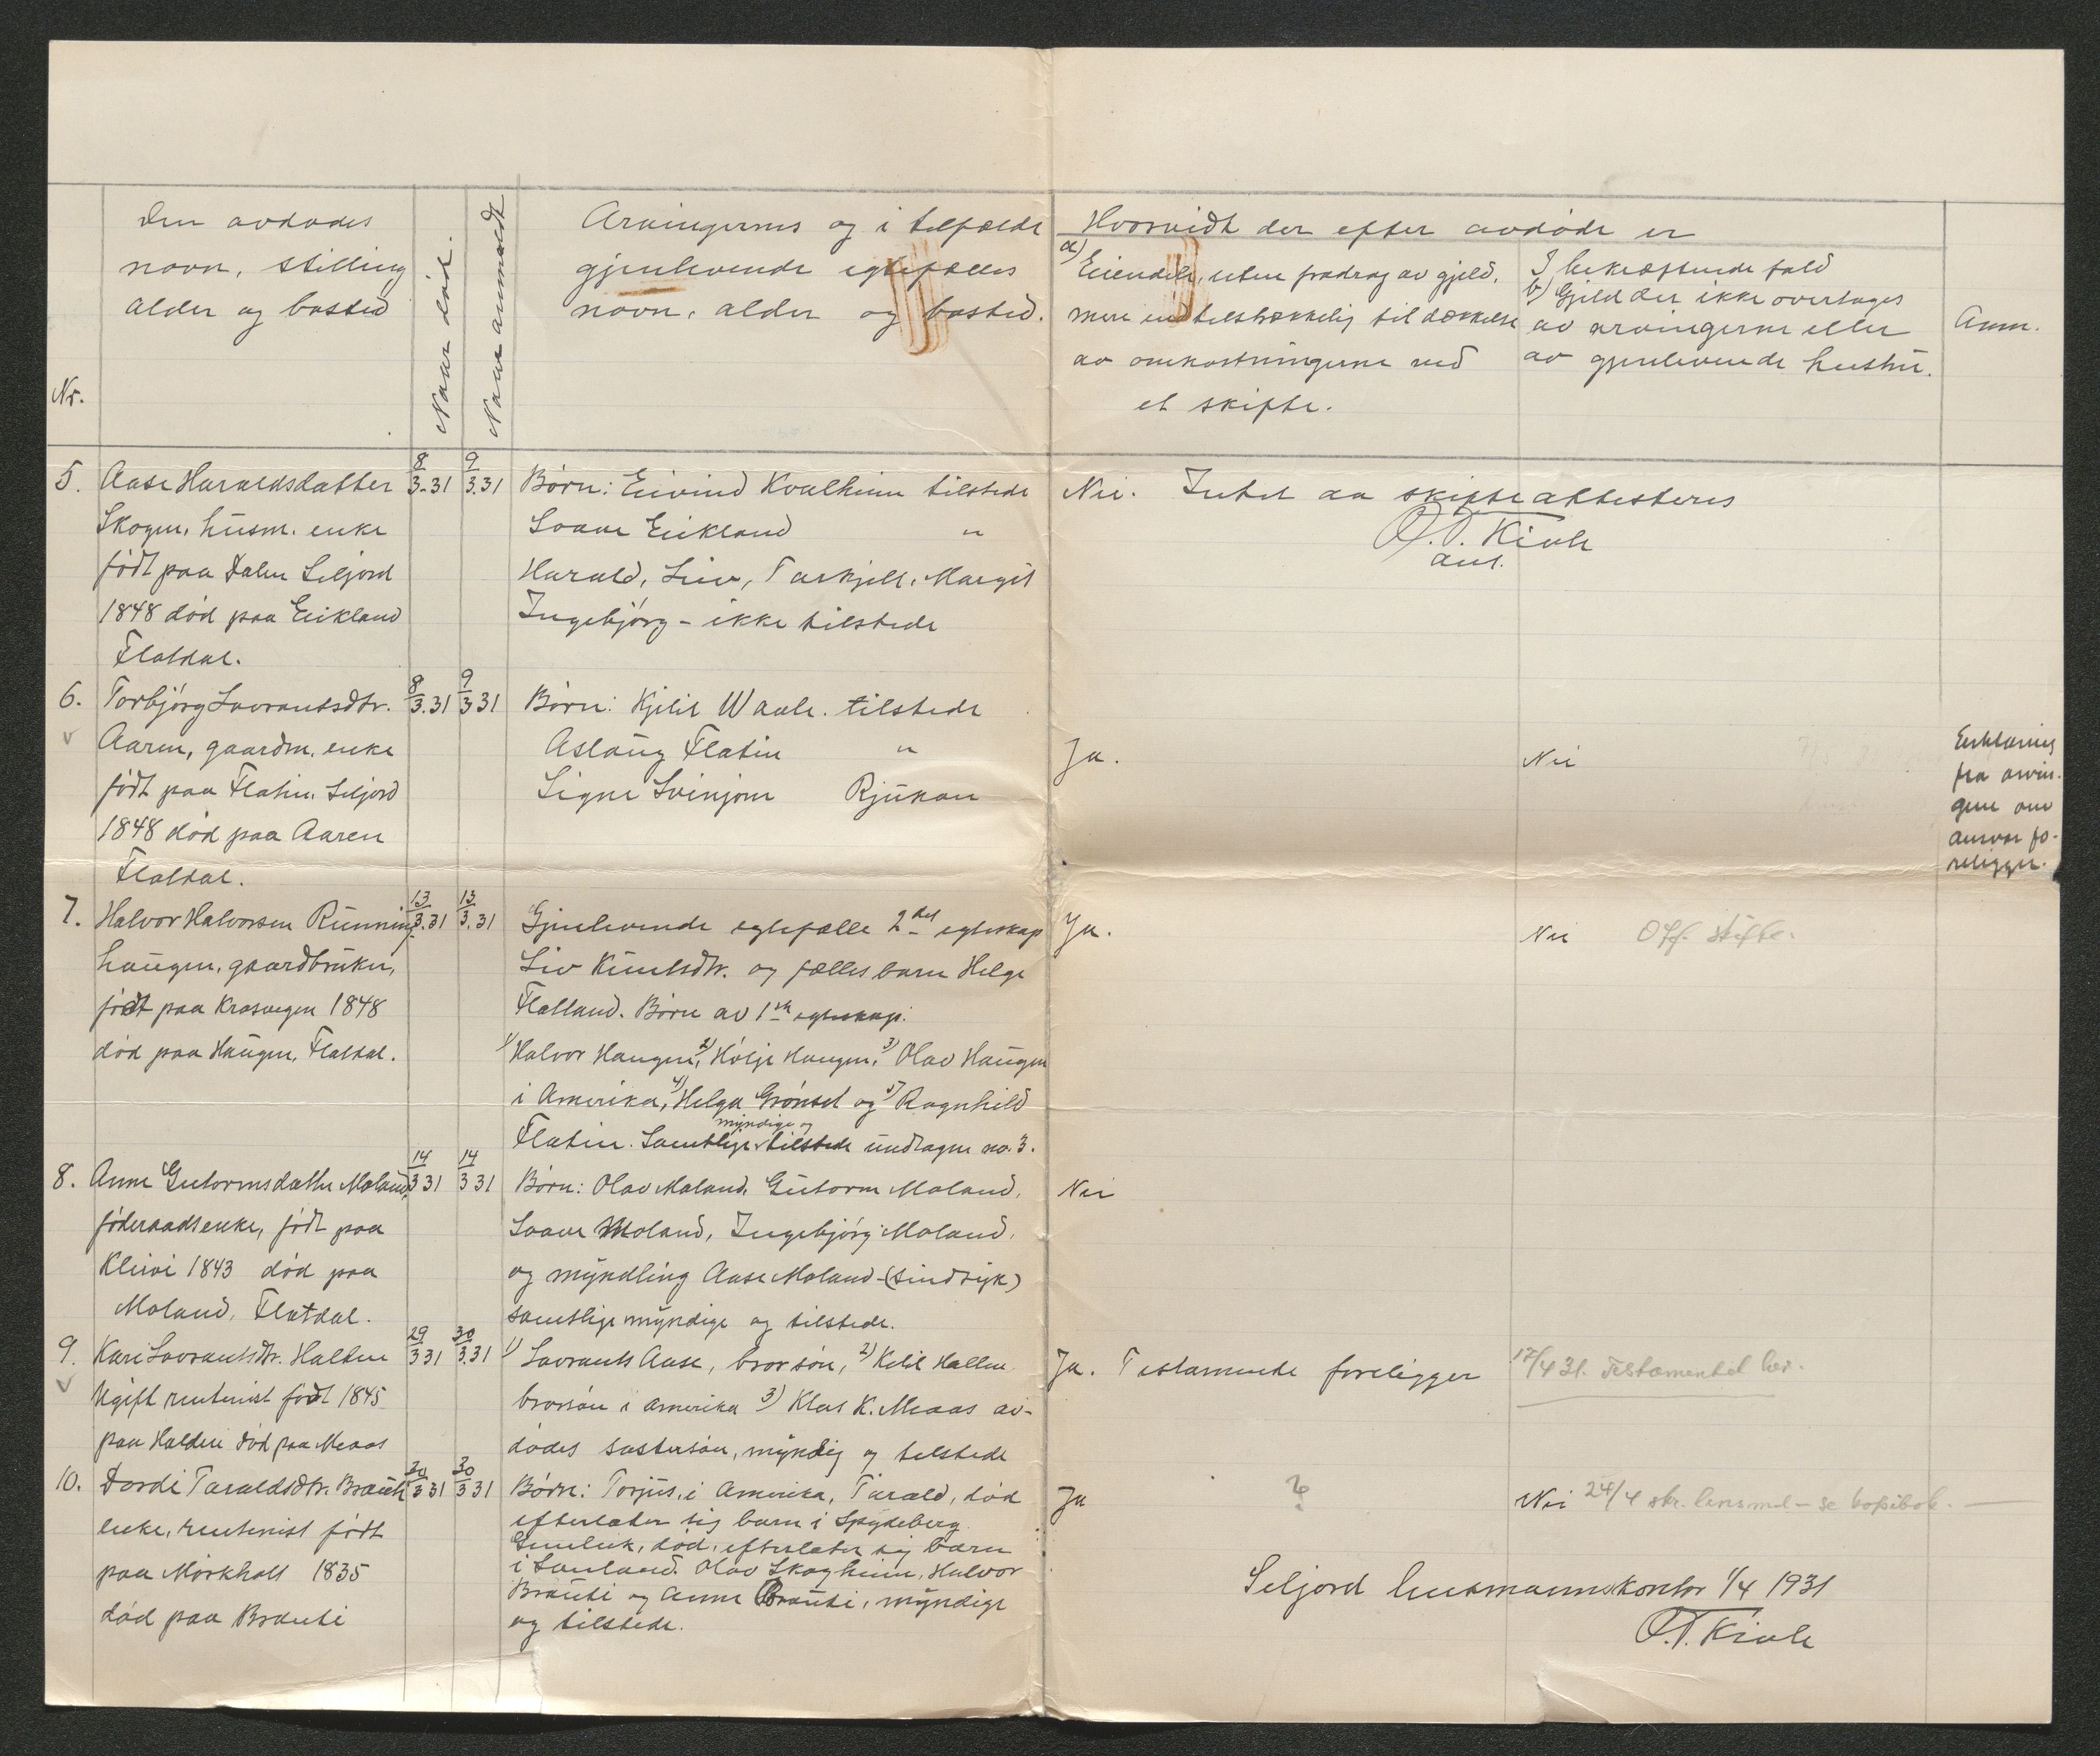 Nr.
Den avdødes
navn, stilling
alder og bosted
Naar død.
Naar anmeldt
Arvingernes og i tilfælde
gjenlevende egtefælles
navn, alder og bosted.
Hvorvidt der efter avdøde er
a) Eiendele, uten fradrag av gjeld,
mere end tilstrækkelig til dækkelse
av omkostningerne ved
et skifte.
I bekræftende fald
b) Gjeld der ikke overtages
av arvingerne eller
av gjenlevende hustru.
Anm.
5. Aase Haraldsdatter 8/3-31 9/3.31 Børn: Eivind Kvalheim tilstede Nei. Intet aa skifte attesteres
Skogen, husm. enke Svaar Eikland "
O.T. Kivle
født paa Dalen Seljord Harald, Liv, Tarkjell, Margit
1848 død paa Eikland Ingebjørg - ikke tilstede
Flatdal.
6. Torbjørg Lavrantsdtr. 8/3.31 9/3 31 Børn: Kjetil Waale. tilstede
Aaren, gaardm. enke Aslaug Flatin " Ja. Nei
født paa Flatin, Seljord Signe Svinjom Rjukan
1848 død paa Aaren
Flatdal.
Erklæring
fra arvin-
gene om
ansvar fo-
religger.
7. Halvor Halvorsen Rünning- 13/3.31 13/3.31 Gjenlevende egtefælle 2det egteskap Ja. Nei Off. skifte.
haugen, gaardbruker, Liv Knutsdtr. og fælles barn Helge
født paa Krosvegen 1848 Flatland. Børn av 1ste egteskap:
død paa Haugen, Flatdal. 1) Halvor Haugen, 2) Høljе Haugen, 3) Olav Haugen
i Amerika, 4) Helga Grønset og 5) Ragnhild
myndige og
Flatin. Samtlige tilstede undtagen no. 3.
8. Anne Gutormsdatter Moland, 14/3 31 14/3 31 Børn: Olav Moland, Gutorm Moland, Nei
føderaadsenke, født paa Svaar Moland, Ingebjørg Moland,
Kleivi 1843 død paa og myndling Aase Moland - (sindsyk)
Moland, Flatdal. samtlige myndige og tilstede.
9. Kari Lavrantsdtr. Halden 29/3 31 30/3.31 1) Lavrants Aase, brorsøn, 2) Ketil Hallen Ja. Testamente foreligger 17/4 31. Testamentet her.
Ugift rentenist født 1845 brorsøn i Amerika 3) Klas K. Meaas av-
paa Halden død paa Meaas dødes søstersøn, myndig og tilstede
10. Dordi Taraldsdtr. Brauti 30/3 31 30/3 31 Børn: Torjus, i Amerika, Tarald, død Ja ? Nei 24/4 skr. lensmd - se kopibok.
enke, rentenist født efterlater sig barn i Spydeberg.
Gunleik, død, efterlater sig barn
paa Mørkholt 1835 i Sauland. Olav Skogheim, Halvor
Brauti og Anne Brauti, myndige
død paa Brauti og tilstede.
Seljord lensmannskontor 1/4 1931
O.T. Kivle